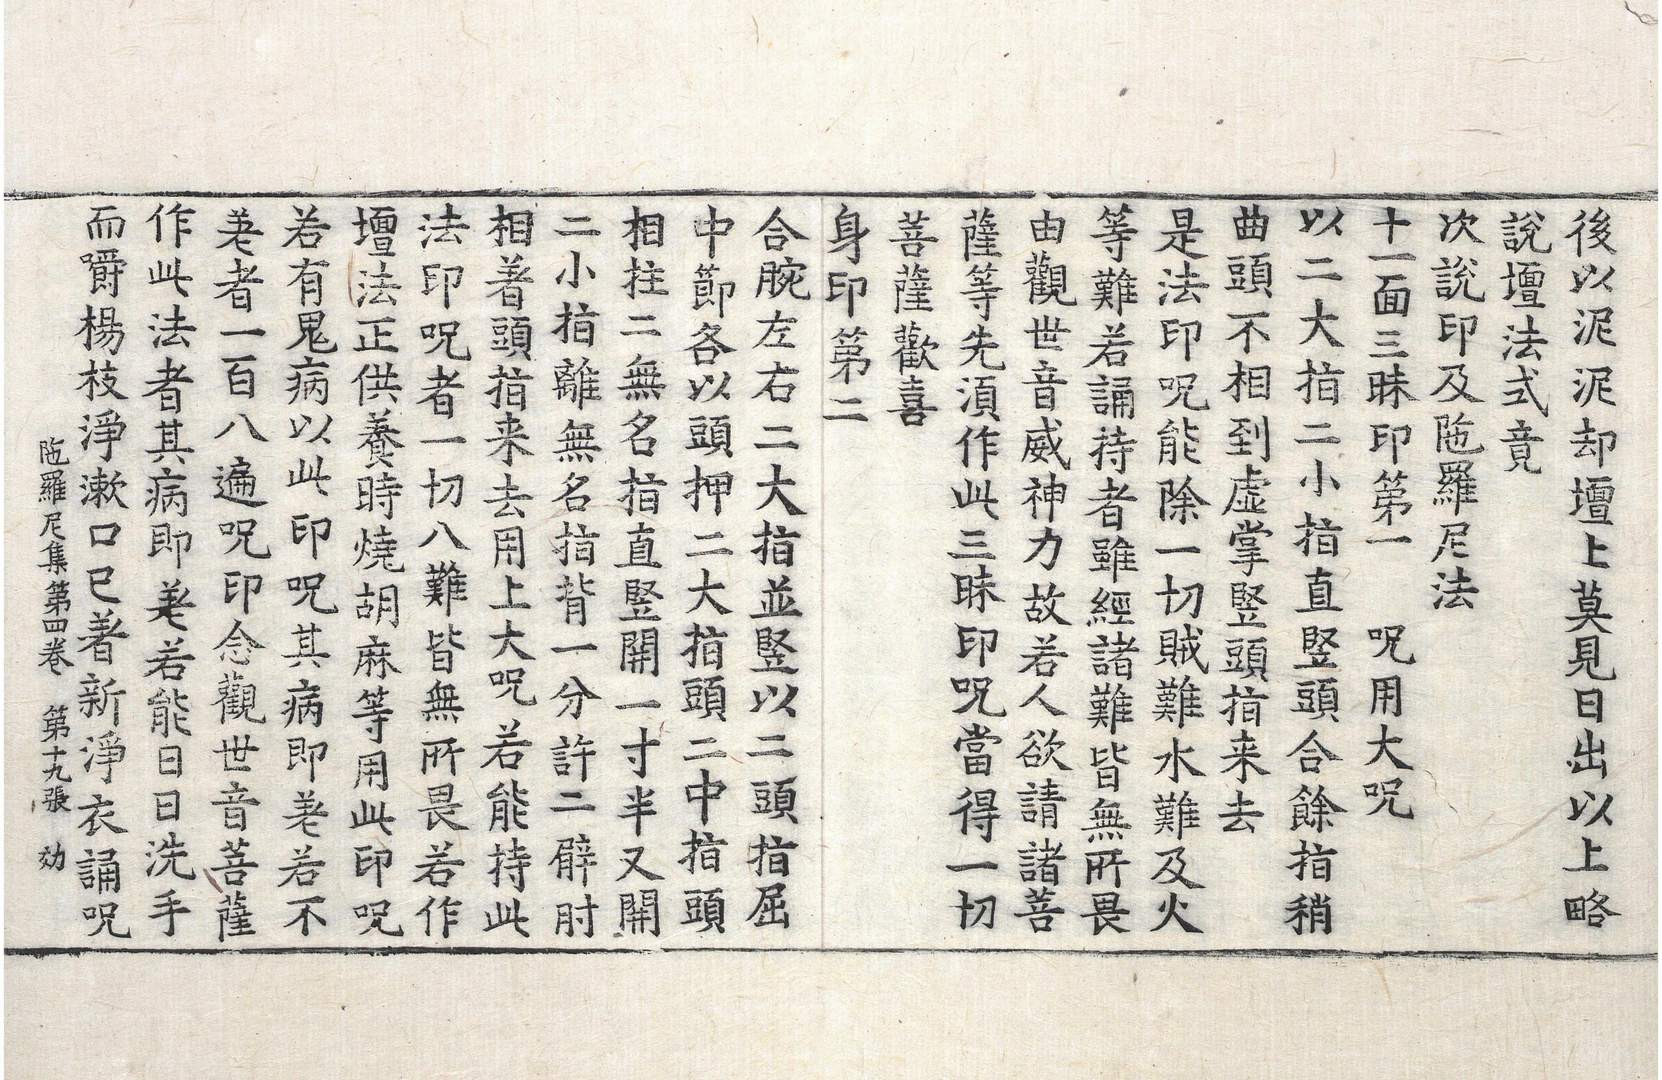 後以泥泥却壇上莫見日出以上略
說壇法式竟
次說印及陁羅尼法
十一面三昧印第一　呪用大呪
以二大指二小指直竪頭合餘指稍
曲頭不相到虛掌竪頭指来去
是法印呪能除一切賊難水難及火
等難若誦持者雖經諸難皆無所畏
由觀世音威神力故若人欲請諸菩
薩等先湏作此三昧印呪當得一切
菩薩歡喜
身印第二
合腕左右二大指並竪以二頭指屈
中節各以頭押二大指頭二中指頭
相拄二無名指直竪開一寸半又開
二小指離無名指背一分許二臂肘
相著頭指来去用上大呪若能持此
法印呪者一切八難皆無所畏若作
壇法正供養時燒胡麻等用此印呪
若有鬼病以此印呪其病即差若不
差者一百八遍呪印念觀世音菩薩
作此法者其病即差若能日日洗手
而嚼楊枝淨漱口已著新淨衣誦呪
陁羅尼集第四卷　第十九張　効